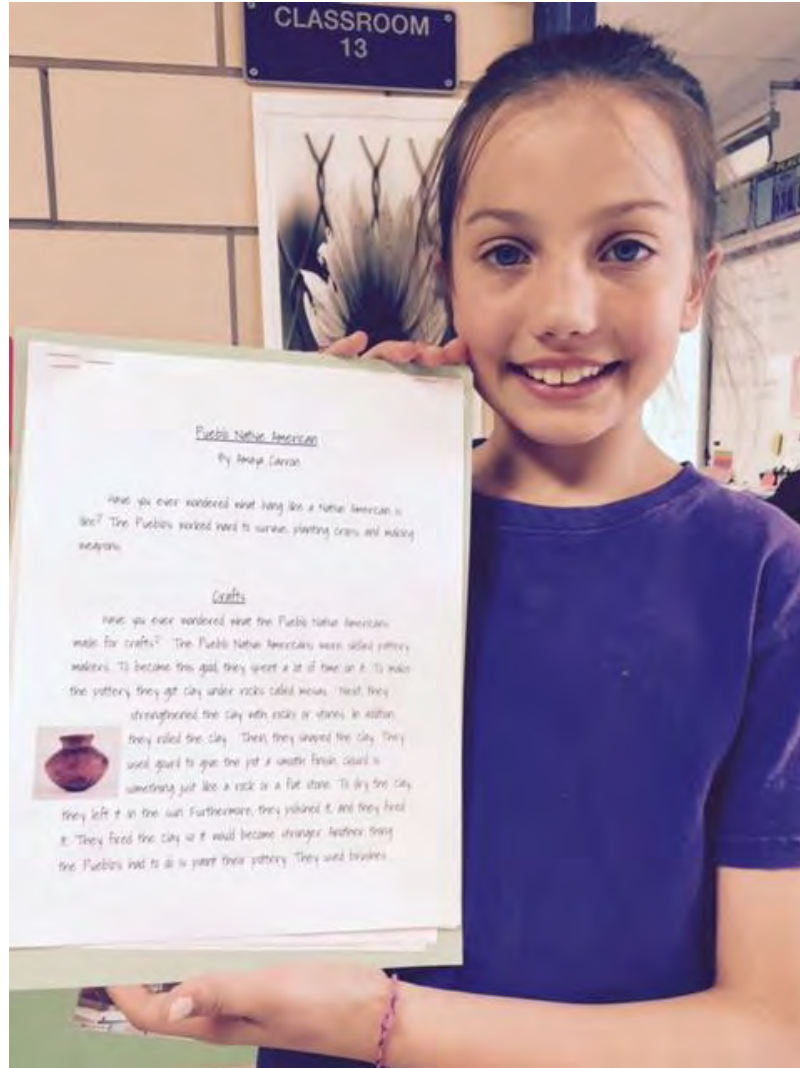 CLASSROOM
13
Pueblo Native American
By Amaya
Have you ever wondered what being like a Native American is
like? The Pueblos worked hard to survive, planting crops, and making
weapons.
Crafts
Have you ever wondered what the Pueblo Native Americans
made for crafts? The Pueblo Native Americans were skilled pottery
makers. To become this good, they spent a lot of time on it. To make
the pottery, they got clay under rocks called mesas. Next, they
strengthened the clay with rocks or stones. In addition,
they rolled the clay. Then, they shaped the clay. They
used gourd to give the pot a smooth finish. Gourd is
something just like a rock or a flat stone. To dry the clay,
they left it in the sun. Furthermore, they polished it, and they fired
it. They fired the clay so it would become stronger. Another thing
the Pueblos had to do is paint their pottery. They used brushes